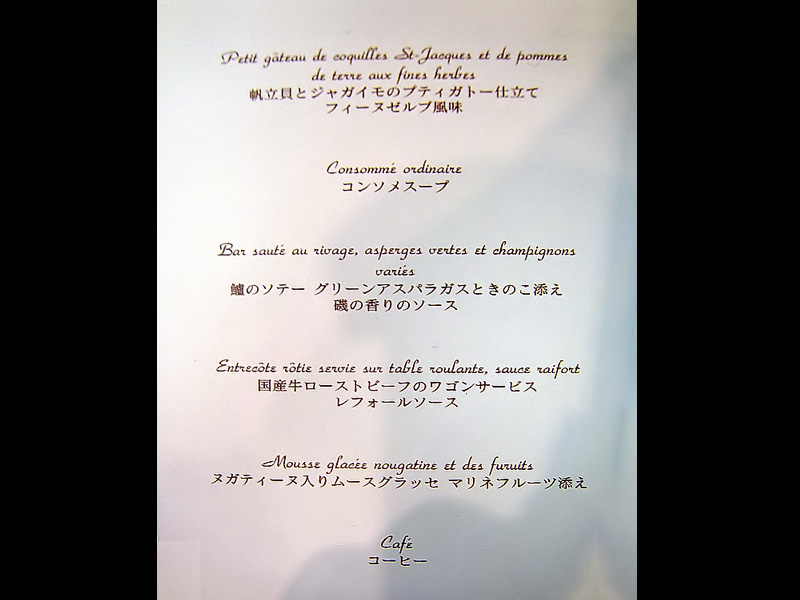 Petit gâteau de coquilles St-Jacques et de pommes
de terre aux fines herbes
帆立貝とジャガイモのプティガトー仕立て
フィーヌゼルブ風味
Consommé ordinaire
コンソメスープ
Bar sauté au rivage, asperges vertes et champignons
variés
鱸のソテー グリーンアスパラガスときのこ添え
磯の香りのソース
Entrecôte rôtie servie sur table roulante, sauce raifort
国産牛ローストビーフのワゴンサービス
レフォールソース
Mousse glacée nougatine et des furuits
ヌガティーヌ入りムースグラッセ マリネフルーツ添え
Café
コーヒー